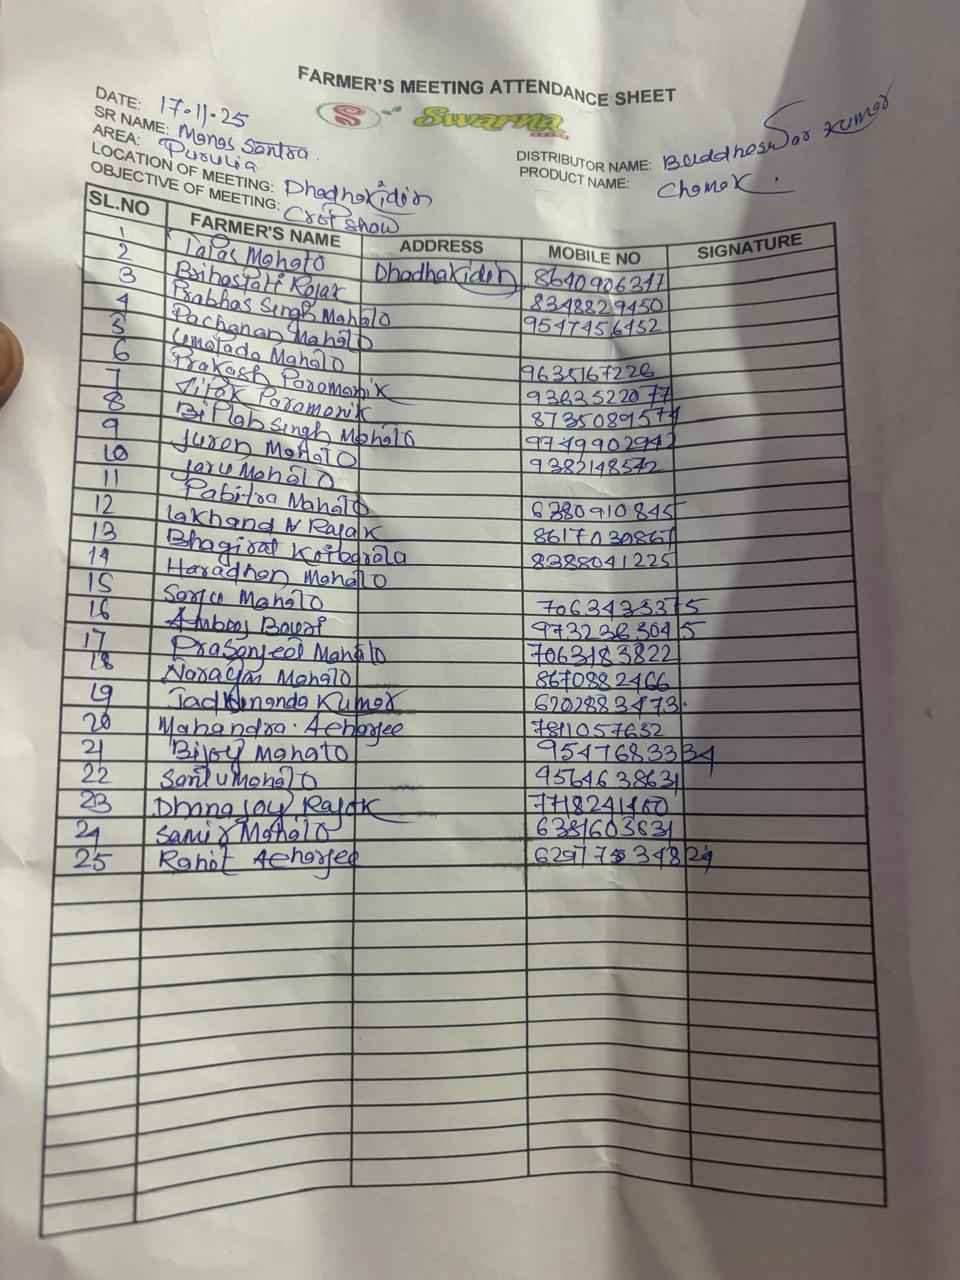 FARMER'S MEETING ATTENDANCE SHEET
S Swarna
DATE: 17.11.25
SR NAME: Manas Santra.
DISTRIBUTOR NAME: Buddheswar Kumar
AREA: Purulia
PRODUCT NAME: Chamak.
LOCATION OF MEETING: Dhadhakidih
OBJECTIVE OF MEETING: Crop Show
SL.NO FARMER'S NAME ADDRESS MOBILE NO SIGNATURE
1 Tapas Mahato Dhadhakidih 8640906347
2 Brihaspati Rajak 8348829450
3 Prabhas Singh Mahato 9547456452
4 Pachanan Mahato
5 Umapada Mahato 9635167226
6 Prakash Paramanik 9363522077
7 Tilak Paramanik 8735089574
8 Biplab Singh Mahato 9749902942
9 Juren Mahato 9382148542
10 Jaru Mahato
11 Pabitra Mahato 6380910845
12 Lakhand N Rajak 8617030867
13 Bhagirat 8388041225
14 Haradhan Mahato
15 Sarju Mahato 7063433375
16 Bauri 9732363045
17 Prasenjeet Mahato 7063183822
18 Narayan Mahato 8670882466
19 Kumar 6202883473
20 Mahandra. Acharjee 7811057632
21 Bijoy Mahato 9547683334
22 Santu Mahato 9564638631
23 Dhanajoy Rajak 7718241460
24 Samir Mahato 6381603631
25 Rohit Acharjee